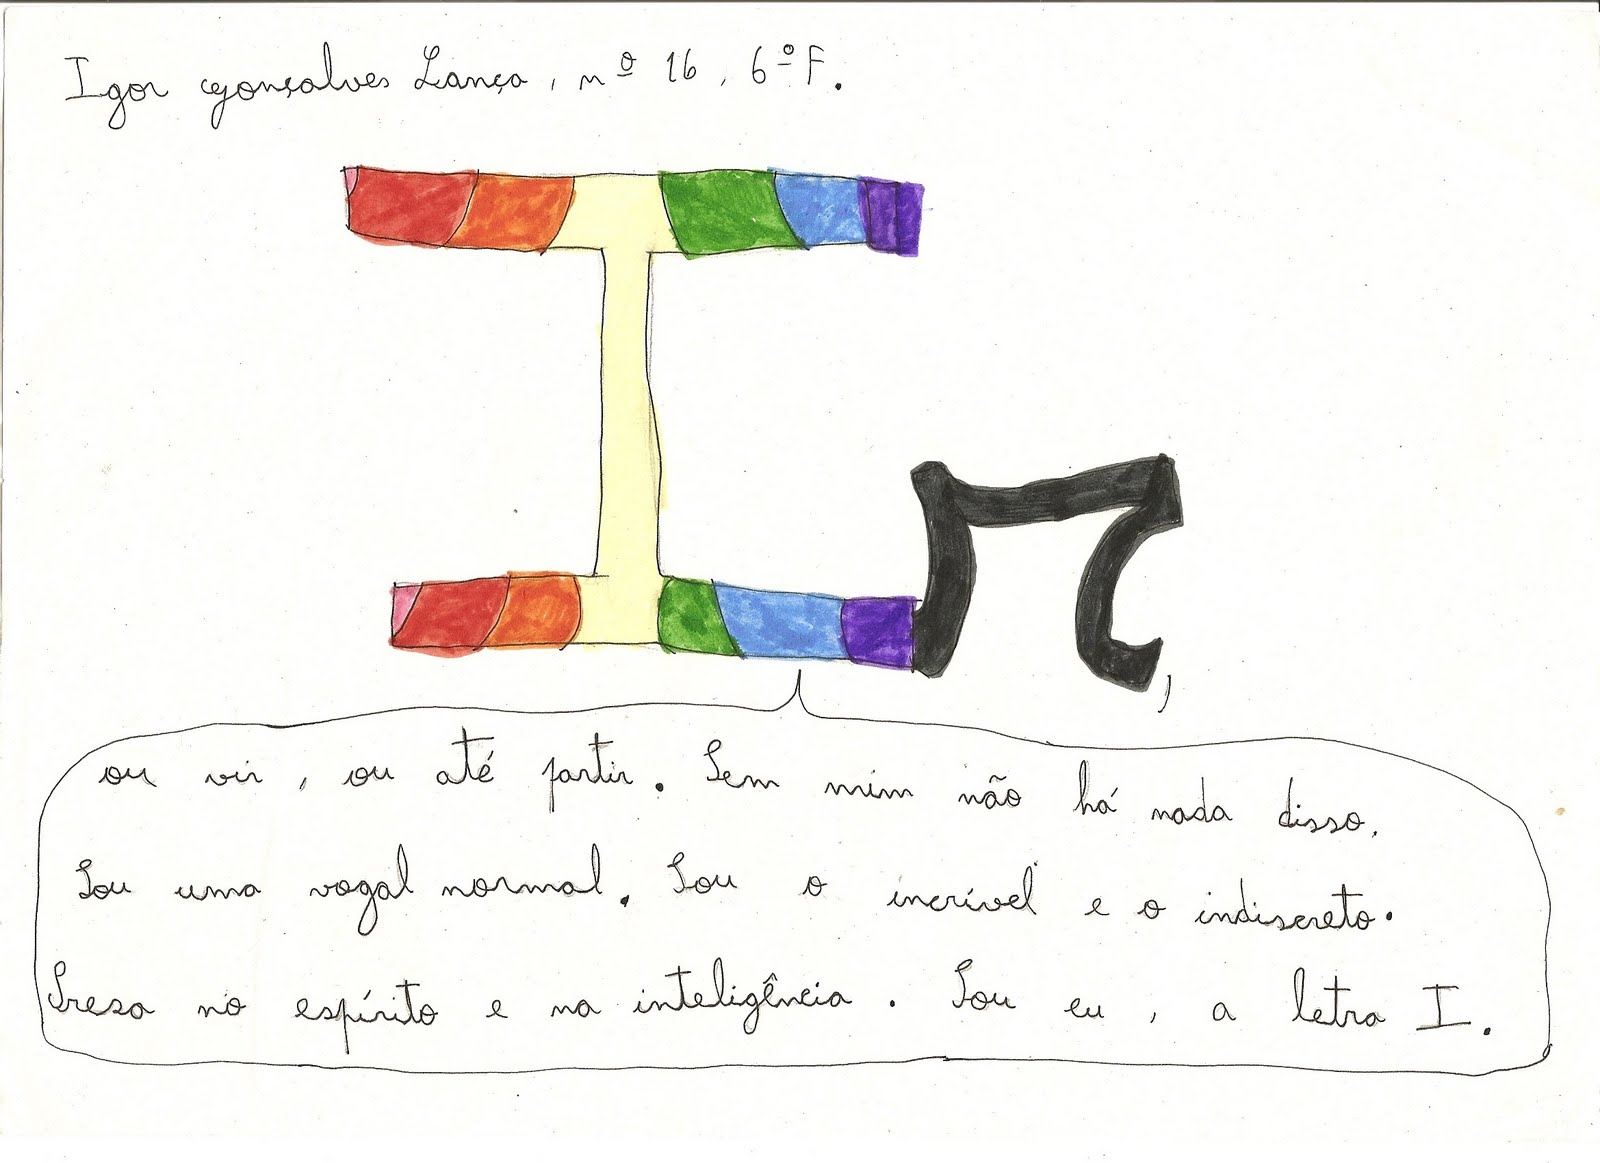 Igor Gonçalves Lança, nº 16, 6º F.
Ir,
ou vir, ou até partir. Sem mim não há nada disso.
Sou uma vogal normal. Sou o incrível e o indiscreto.
Presa no espírito e na inteligência. Sou eu, a letra I.